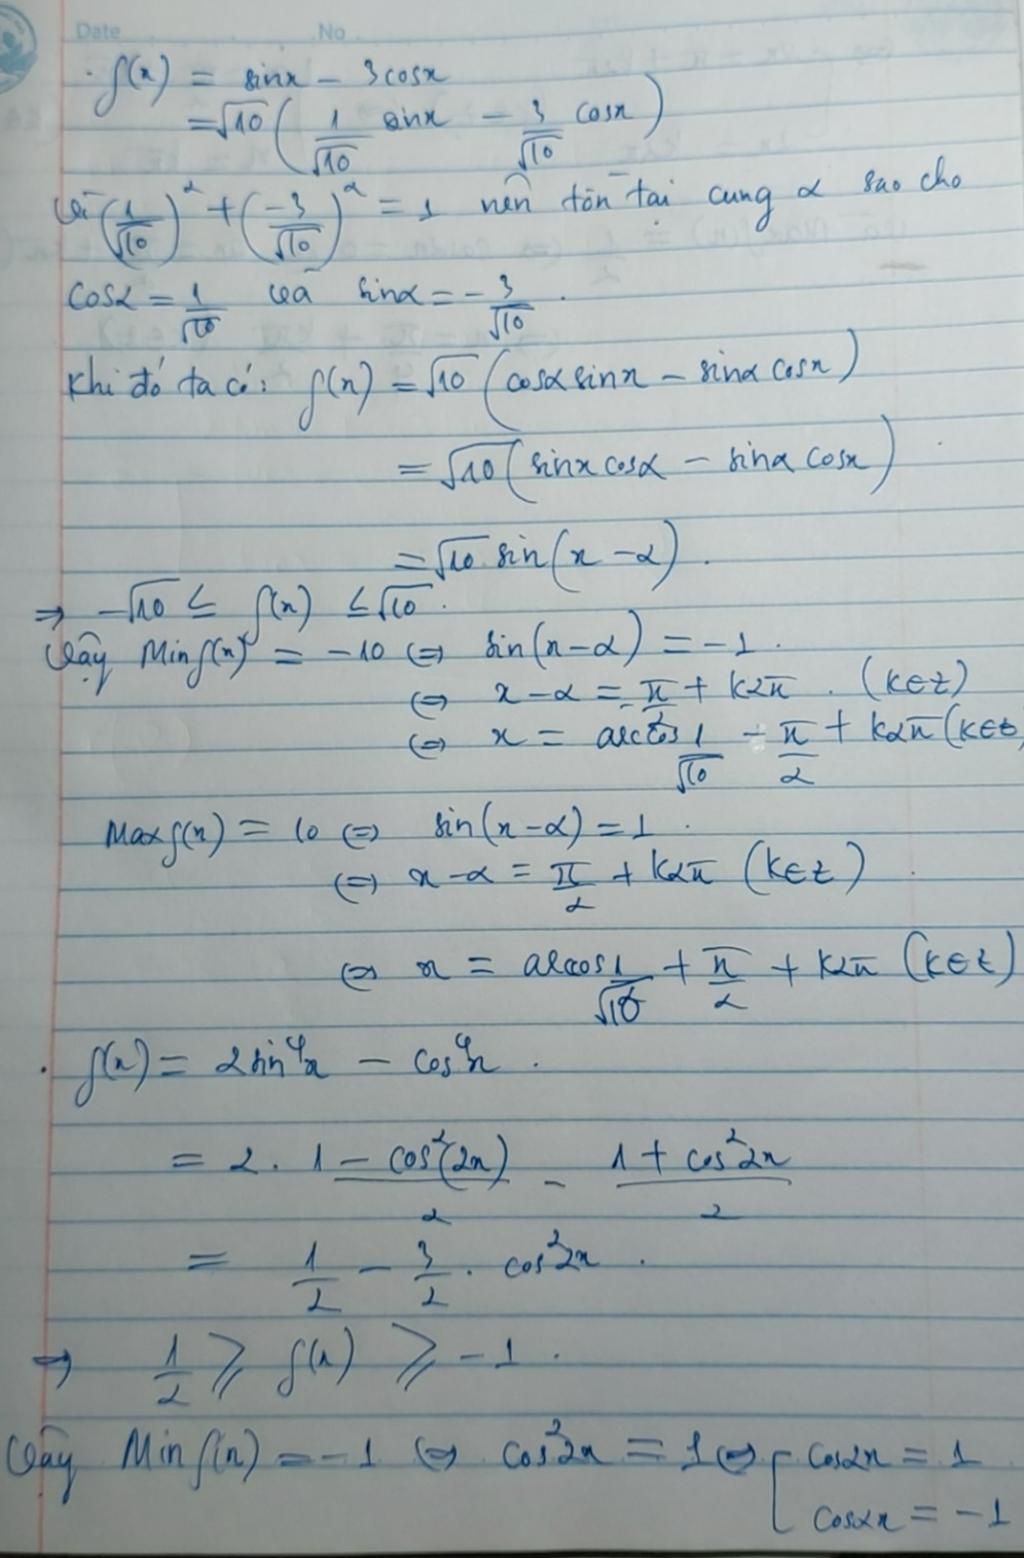 Date No
. f(x) = sinx − 3cosx
= √10 ( 1/√10 sinx − 3/√10 cosx )
Vì (1/√10)² + (−3/√10)² = 1 nên tồn tại cung α sao cho
cosα = 1/√10 và sinα = − 3/√10 .
Khi đó ta có: f(x) = √10 (cosα sinx − sinα cosx)
= √10 (sinx cosα − sinα cosx)
= √10 sin(x − α) .
⇒ −√10 ≤ f(x) ≤ √10 .
Vậy Min f(x) = −10 ⇔ sin(x−α) = −1 .
⇔ x − α = −π/2 + k2π . (k∈Z)
⇔ x = arccos 1/√10 − π/2 + k2π (k∈Z)
Max f(x) = 10 ⇔ sin(x−α) = 1 .
⇔ x−α = π/2 + k2π (k∈Z) .
⇔ x = arccos 1/√10 + π/2 + k2π (k∈Z)
. f(x) = 2sin⁴x − cos⁴x .
= 2 . (1 − cos²(2x))/2 − (1 + cos²2x)/2
= 1/2 − 3/2 . cos²2x .
⇒ 1/2 ⩾ f(x) ⩾ −1 .
Vậy Min f(x) = −1 ⇔ cos²2x = 1 ⇔ [ cos2x = 1
cos2x = −1